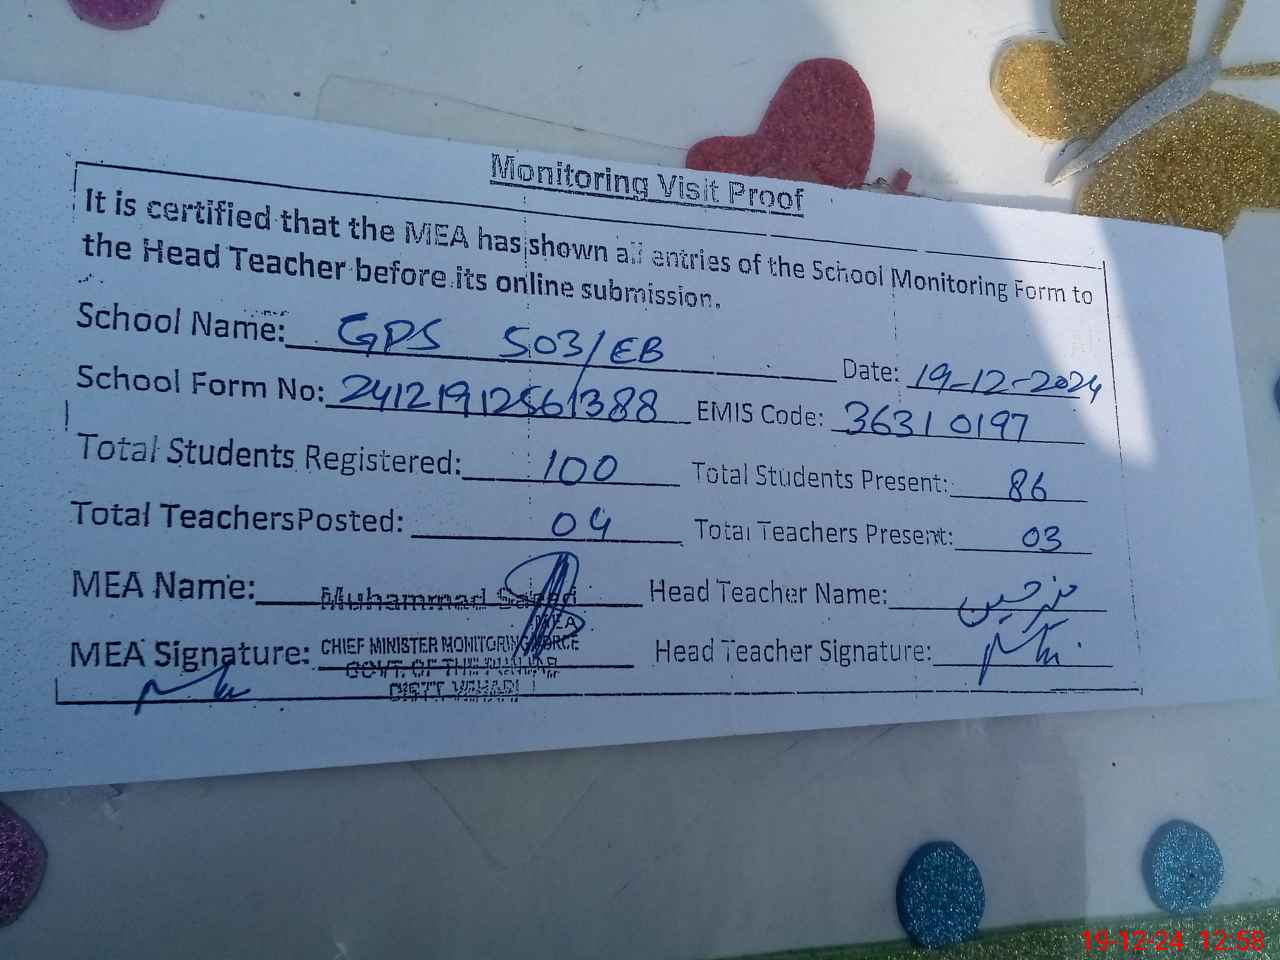 Monitoring Visit Proof
It is certified that the MEA has shown all entries of the School Monitoring Form to
the Head Teacher before its online submission.
School Name: GPS 503/EB Date: 19-12-2024
School Form No: 24121912561388 EMIS Code: 36310197
Total Students Registered: 100 Total Students Present: 86
Total Teachers Posted: 04 Total Teachers Present: 03
MEA Name: Muhammad Saeed Head Teacher Name:
MEA
MEA Signature: CHIEF MINISTER MONITORING FORCE Head Teacher Signature:
GOVT. OF THE PUNJAB
DISTT VEHARI
19-12-24 12:58